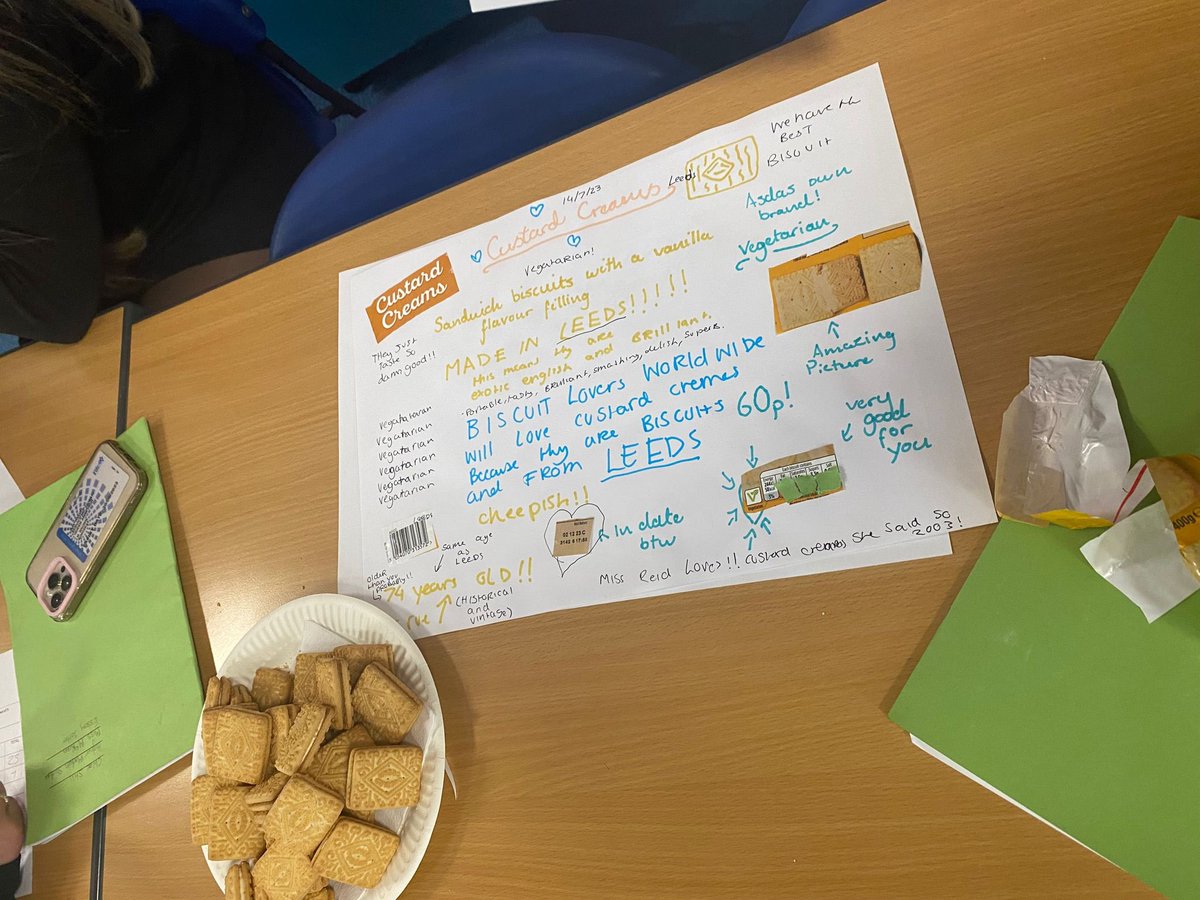 We have th
BEST
BISCUIT
14/7/23
Leeds
Custard Creams
Vegatarian!
Asdas own
brand!
Vegetarian
Custard
Creams
Sandwich biscuits with a vanilla
flavour filling
They just
taste so
damn good!!
MADE IN LEEDS!!!!!
this means thy are
exotic english and Brilliant.
tasty, Brilliant, smashing, delish, superb.
Amazing
Picture
BISCUIT Lovers WORLD WIDE
will love custard cremes
Because thy are BISCUITS
and FROM LEEDS
60p!
very
good
for
you
vegatatavan
vegatarian
vegatarian
vegatarian
vegatarian
vegatarian
cheepish!!
in date
btw
02 12 23 C
same age
as
LEEDS
older
than you
probably!!
74 years OLD!!
(Historical
and
vintage)
Miss Reid Loves!! custard creams she said so
2003!
400g